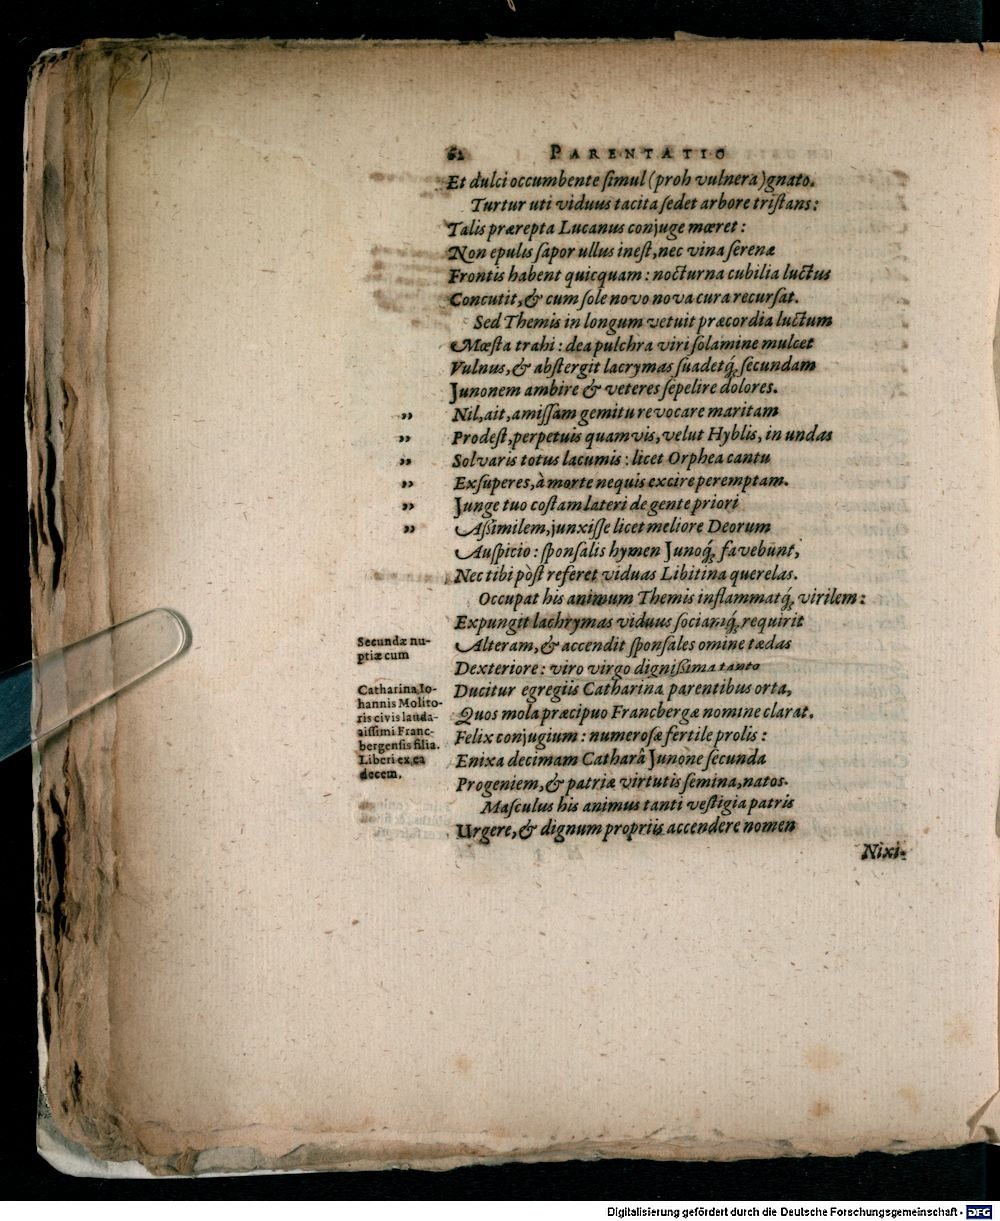 62 PARENTATIO
Et dulci occumbente ſimul (proh vulnera) gnato.
Turtur uti viduus tacita ſedet arbore triſtans:
Talis prærepta Lucanus conjuge mœret:
Non epulis ſapor ullus ineſt, nec vina ſerenæ
Frontis habent quicquam: nocturna cubilia luctus
Concutit, & cum ſole novo nova cura recurſat.
Sed Themis in longum vetuit præcordia luctum
Mœſta trahi: dea pulchra viri ſolamine mulcet
Vulnus, & abſtergit lacrymas ſuadetq́; ſecundam
Junonem ambire & veteres ſepelire dolores.
„ Nil, ait, amiſſam gemitu revocare maritam
„ Prodeſt, perpetuis quamvis, velut Hyblis, in undas
„ Solvaris totus lacumis: licet Orphea cantu
„ Exſuperes, à morte nequis excire peremptam.
„ Junge tuo coſtam lateri de gente priori
„ Aßimilem, junxiſſe licet meliore Deorum
Auſpicio: ſponſalis hymen Junoq́; favebunt,
Nec tibi pòſt referet viduas Libitina querelas.
Occupat his animum Themis inflammatq́; virilem:
Expungit lachrymas viduus ſociamq́; requirit
Secundæ nu-
ptiæ cum
Alteram, & accendit ſponſales omine tædas
Dexteriore: viro virgo digniſſima tanto
Catharina Io-
hannis Molito-
ris civis lauda-
tiſſimi Franc-
bergenſis filia.
Liberi ex ea
decem.
Ducitur egregiis Catharina parentibus orta,
Quos mola præcipuo Francbergæ nomine clarat.
Felix conjugium: numeroſæ fertile prolis:
Enixa decimam Catharâ Junone ſecunda
Progeniem, & patriæ virtutis ſemina, natos.
Maſculus his animus tanti veſtigia patris
Urgere, & dignum propriis accendere nomen
Nixi-
Digitalisierung gefördert durch die Deutsche Forschungsgemeinschaft - DFG